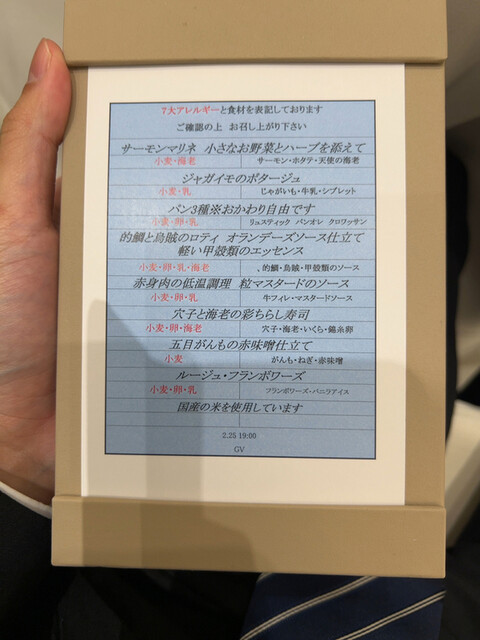 7大アレルギーと食材を表記しております
ご確認の上 お召し上がり下さい
サーモンマリネ 小さなお野菜とハーブを添えて
小麦・海老 サーモン・ホタテ・天使の海老
ジャガイモのポタージュ
小麦・乳 じゃがいも・牛乳・シブレット
パン3種※おかわり自由です
小麦・卵・乳 リュスティック パンオレ クロワッサン
的鯛と烏賊のロティ オランデーズソース仕立て
軽い甲殻類のエッセンス
小麦・卵・乳・海老 、的鯛・烏賊・甲殻類のソース
赤身肉の低温調理 粒マスタードのソース
小麦・卵・乳 牛フィレ・マスタードソース
穴子と海老の彩ちらし寿司
小麦・卵・海老 穴子・海老・いくら・錦糸卵
五目がんもの赤味噌仕立て
小麦 がんも・ねぎ・赤味噌
ルージュ・フランボワーズ
小麦・卵・乳 フランボワーズ・バニラアイス
国産の米を使用しています
2.25 19:00
GV